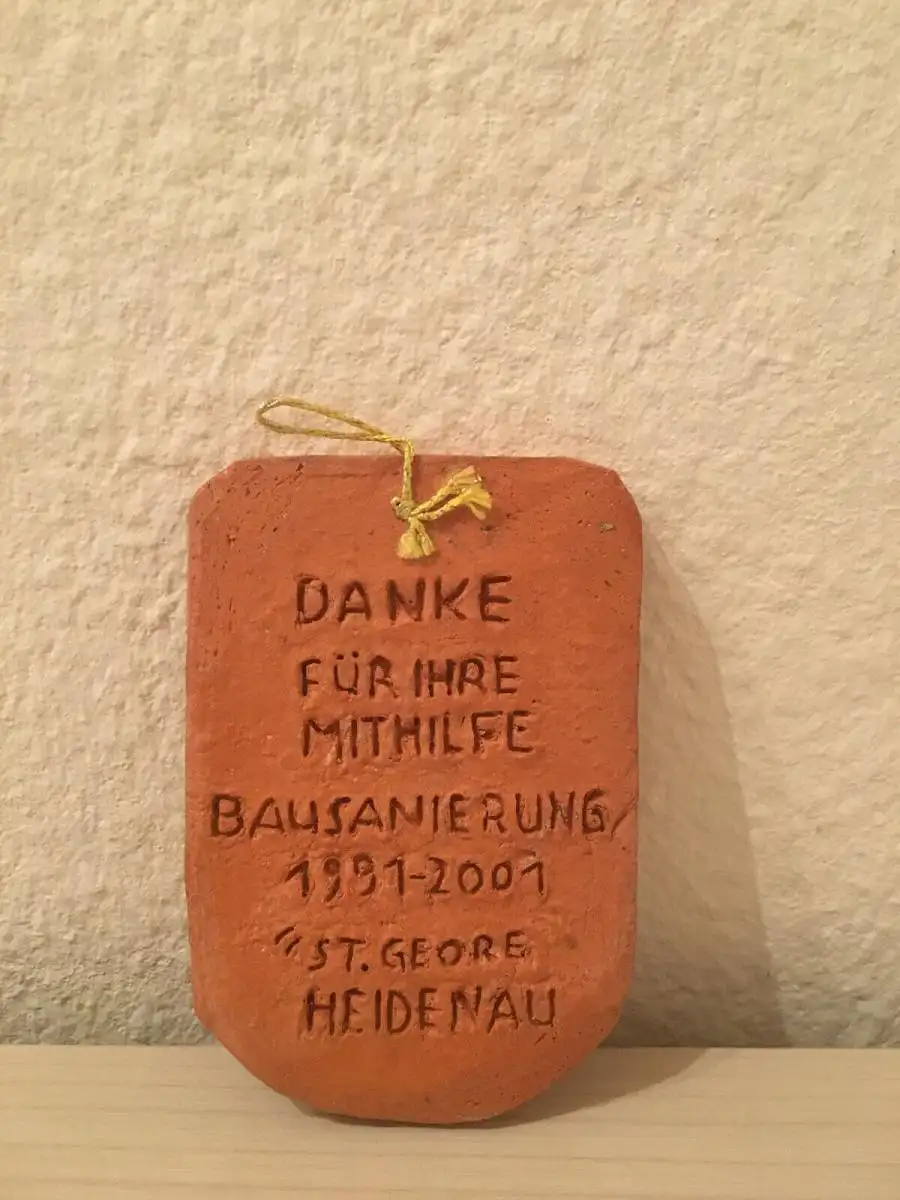 DANKE
FÜR IHRE
MITHILFE
BAUSANIERUNG
1991-2001
"ST. GEORE
HEIDENAU